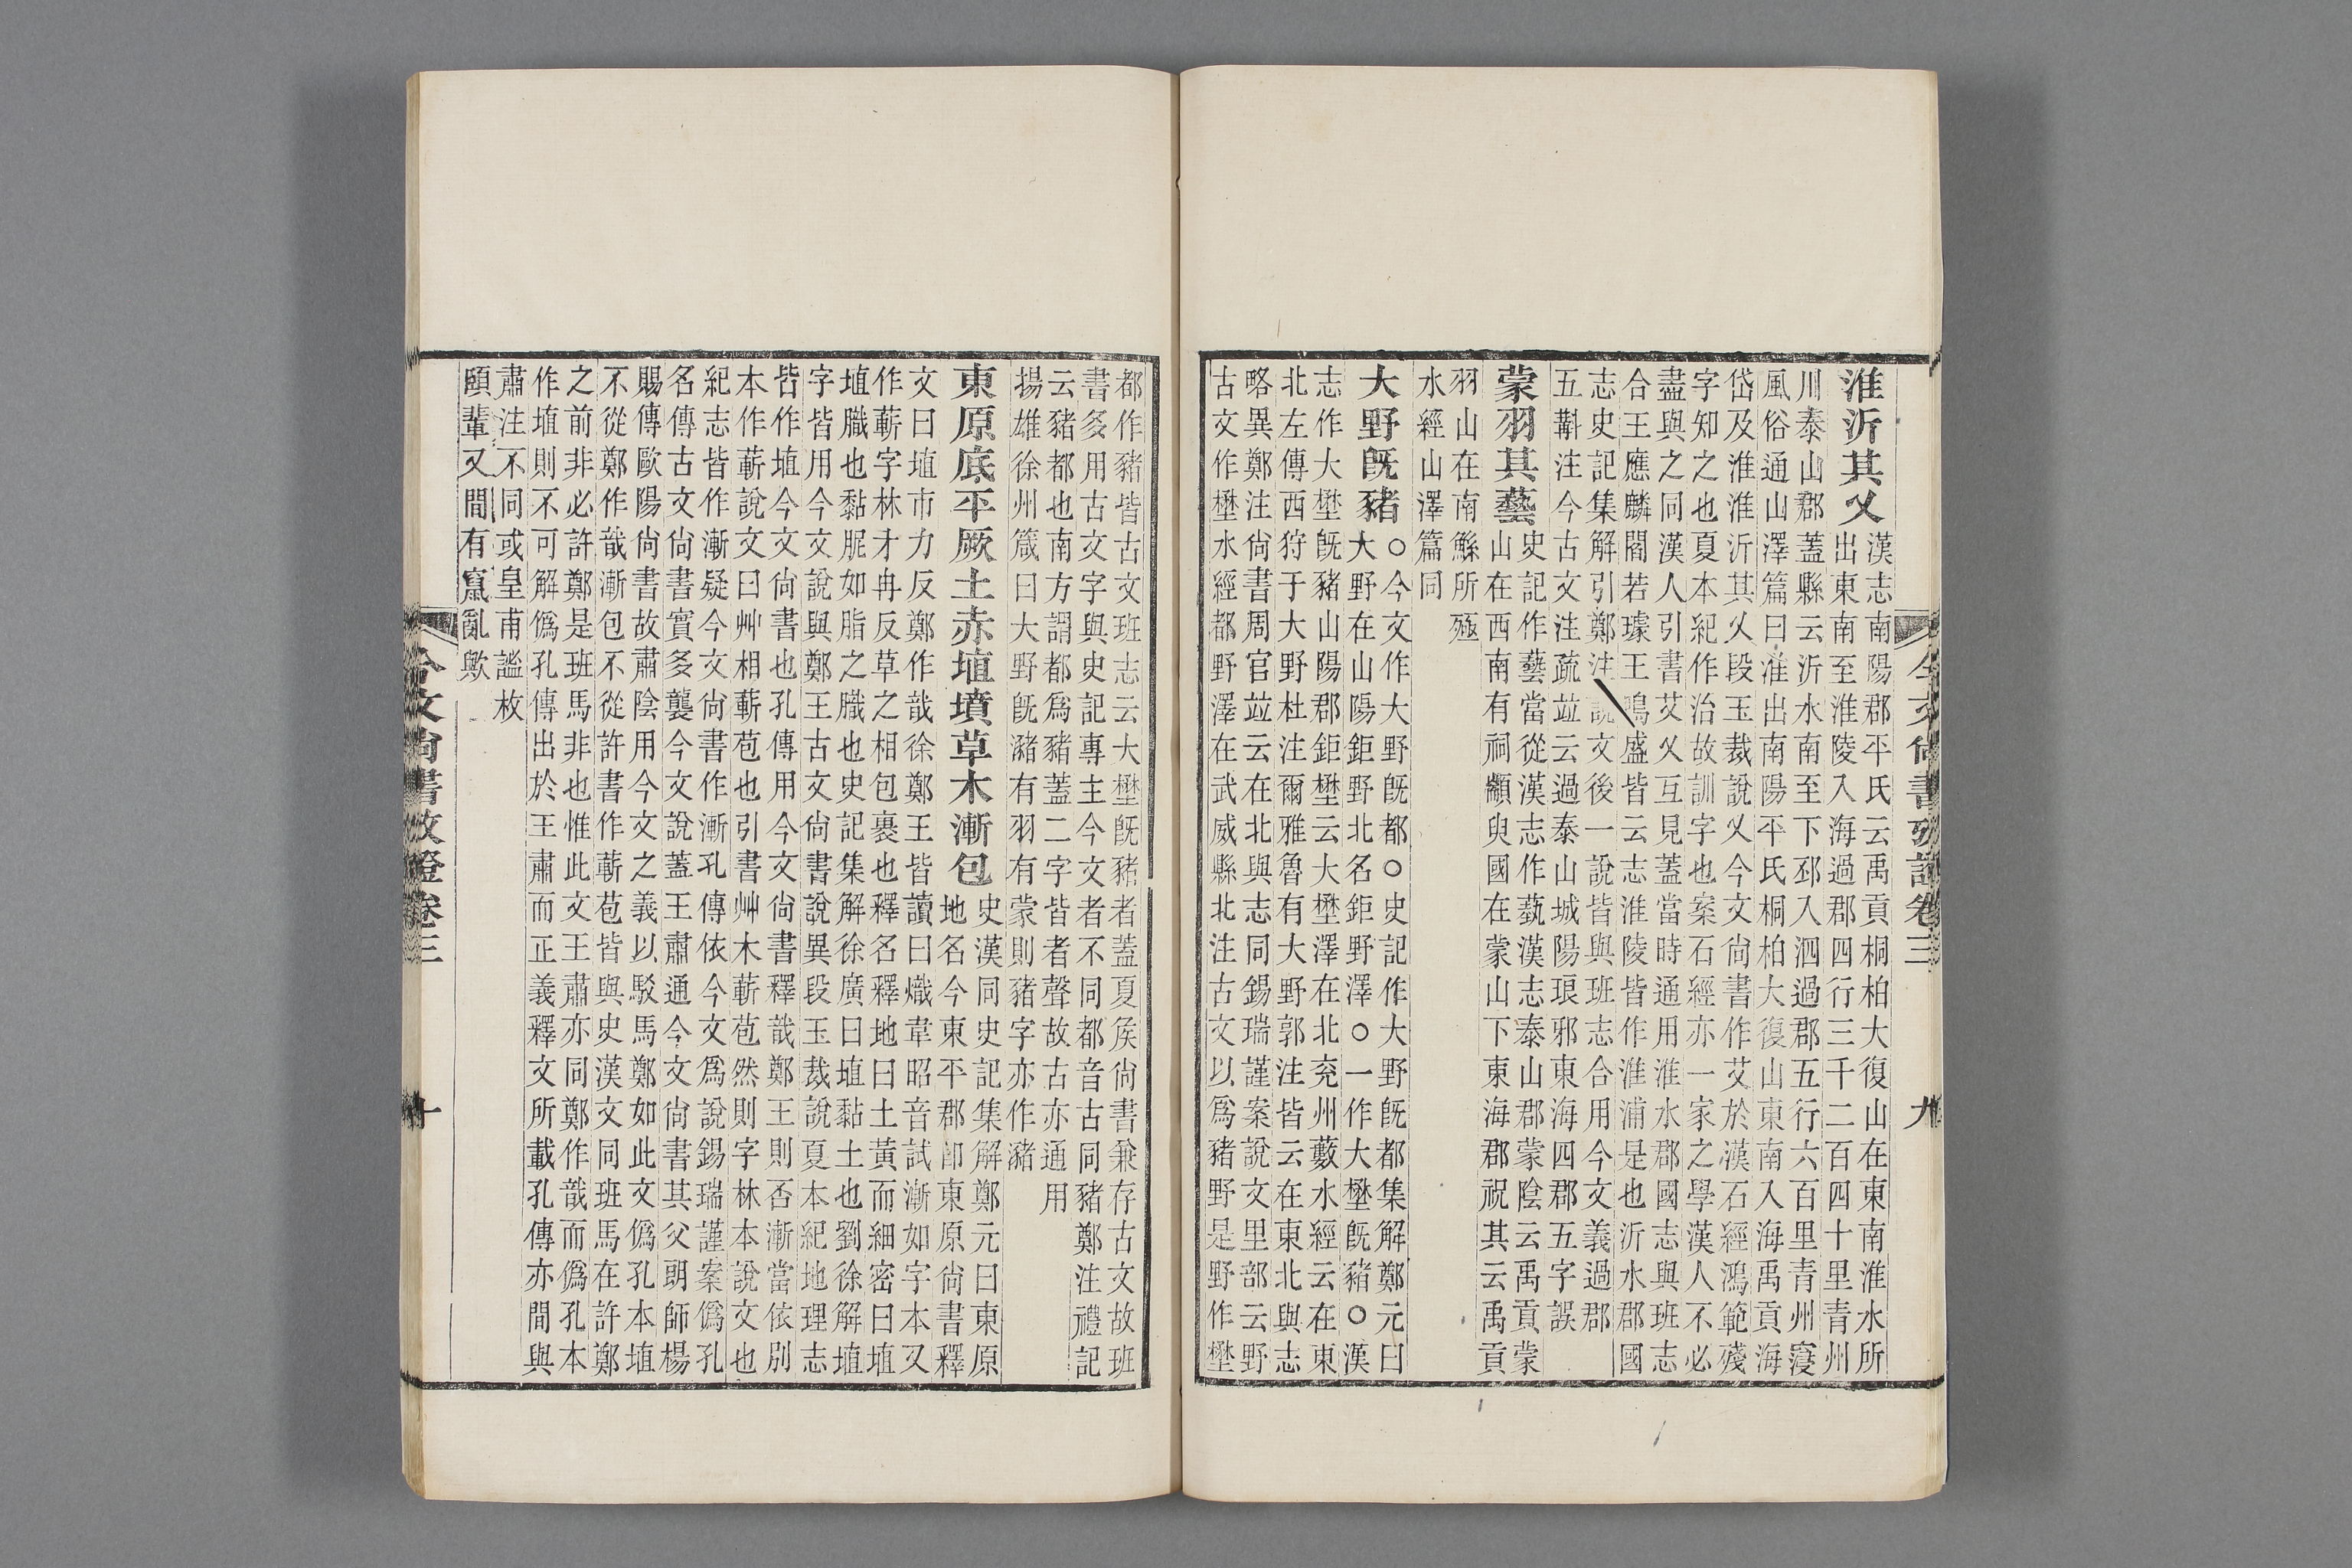 淮沂其乂
漢志南陽郡平氏云禹貢桐柏大復山在東南淮水所
出東南至淮陵入海過郡四行三千二百四十里青州
川泰山郡蓋縣云沂水南至下邳入泗過郡五行六百里青州寖
風俗通山澤篇曰淮出南陽平氏桐柏大復山東南入海禹貢海
岱及淮淮沂其乂段玉裁說乂今文尙書作艾於漢石經鴻範殘
字知之也夏本紀作治故訓字也案石經亦一家之學漢人不必
盡與之同漢人引書艾乂互見蓋當時通用淮水郡國志與班志
合王應麟閻若璩王鳴盛皆云志淮陵皆作淮浦是也沂水郡國
志史記集解引鄭注說文後一說皆與班志合用今文義過郡
五斠注今古文注疏竝云過泰山城陽琅邪東海四郡五字誤
蒙羽其藝
史記作藝當從漢志作蓺漢志泰山郡蒙陰云禹貢蒙
山在西南有祠顓臾國在蒙山下東海郡祝其云禹貢
羽山在南鯀所殛
水經山澤篇同
大野旣豬
○今文作大野旣都○史記作大野旣都集解鄭元曰
大野在山陽鉅野北名鉅野澤○一作大壄旣豬○漢
志作大壄旣豬山陽郡鉅壄云大壄澤在北兖州藪水經云在東
北左傳西狩于大野杜注爾雅魯有大野郭注皆云在東北與志
略異鄭注尙書周官竝云在北與志同錫瑞謹案說文里部云野
古文作壄水經都野澤在武威縣北注古文以爲豬野是野作壄
都作豬皆古文班志云大壄旣豬者蓋夏矦尙書兼存古文故班
書多用古文字與史記專主今文者不同都音古同豬鄭注禮記
云豬都也南方謂都爲豬蓋二字皆者聲故古亦通用
揚雄徐州箴曰大野旣瀦有羽有蒙則豬字亦作瀦
東原底平厥土赤埴墳草木漸包
史漢同史記集解鄭元曰東原
地名今東平郡卽東原尙書釋
文曰埴市力反鄭作戠徐鄭王皆讀曰熾韋昭音試漸如字本又
作蔪字林才冉反草之相包裹也釋名釋地曰土黃而細密曰埴
埴膱也黏胒如脂之膱也史記集解徐廣曰埴黏土也劉徐解埴
字皆用今文說與鄭王古文尙書說異段玉裁說夏本紀地理志
皆作埴今文尙書也孔傳用今文尙書釋戠鄭王則否漸當依別
本作蔪說文曰艸相蔪苞也引書艸木蔪苞然則字林本說文也
紀志皆作漸疑今文尙書作漸孔傳依今文爲說錫瑞謹案僞孔
名傳古文尙書實多襲今文說蓋王肅通今文尙書其父朗師楊
賜傳歐陽尙書故肅陰用今文之義以駁馬鄭如此文僞孔本埴
不從鄭作戠漸包不從許書作蔪苞皆與史漢文同班馬在許鄭
之前非必許鄭是班馬非也惟此文王肅亦同鄭作戠而僞孔本
作埴則不可解僞孔傳出於王肅而正義釋文所載孔傳亦間與
肅注不同或皇甫謐枚
頤輩又間有竄亂歟
今文尙書攷證卷三
九
今文尙書攷證卷三
十